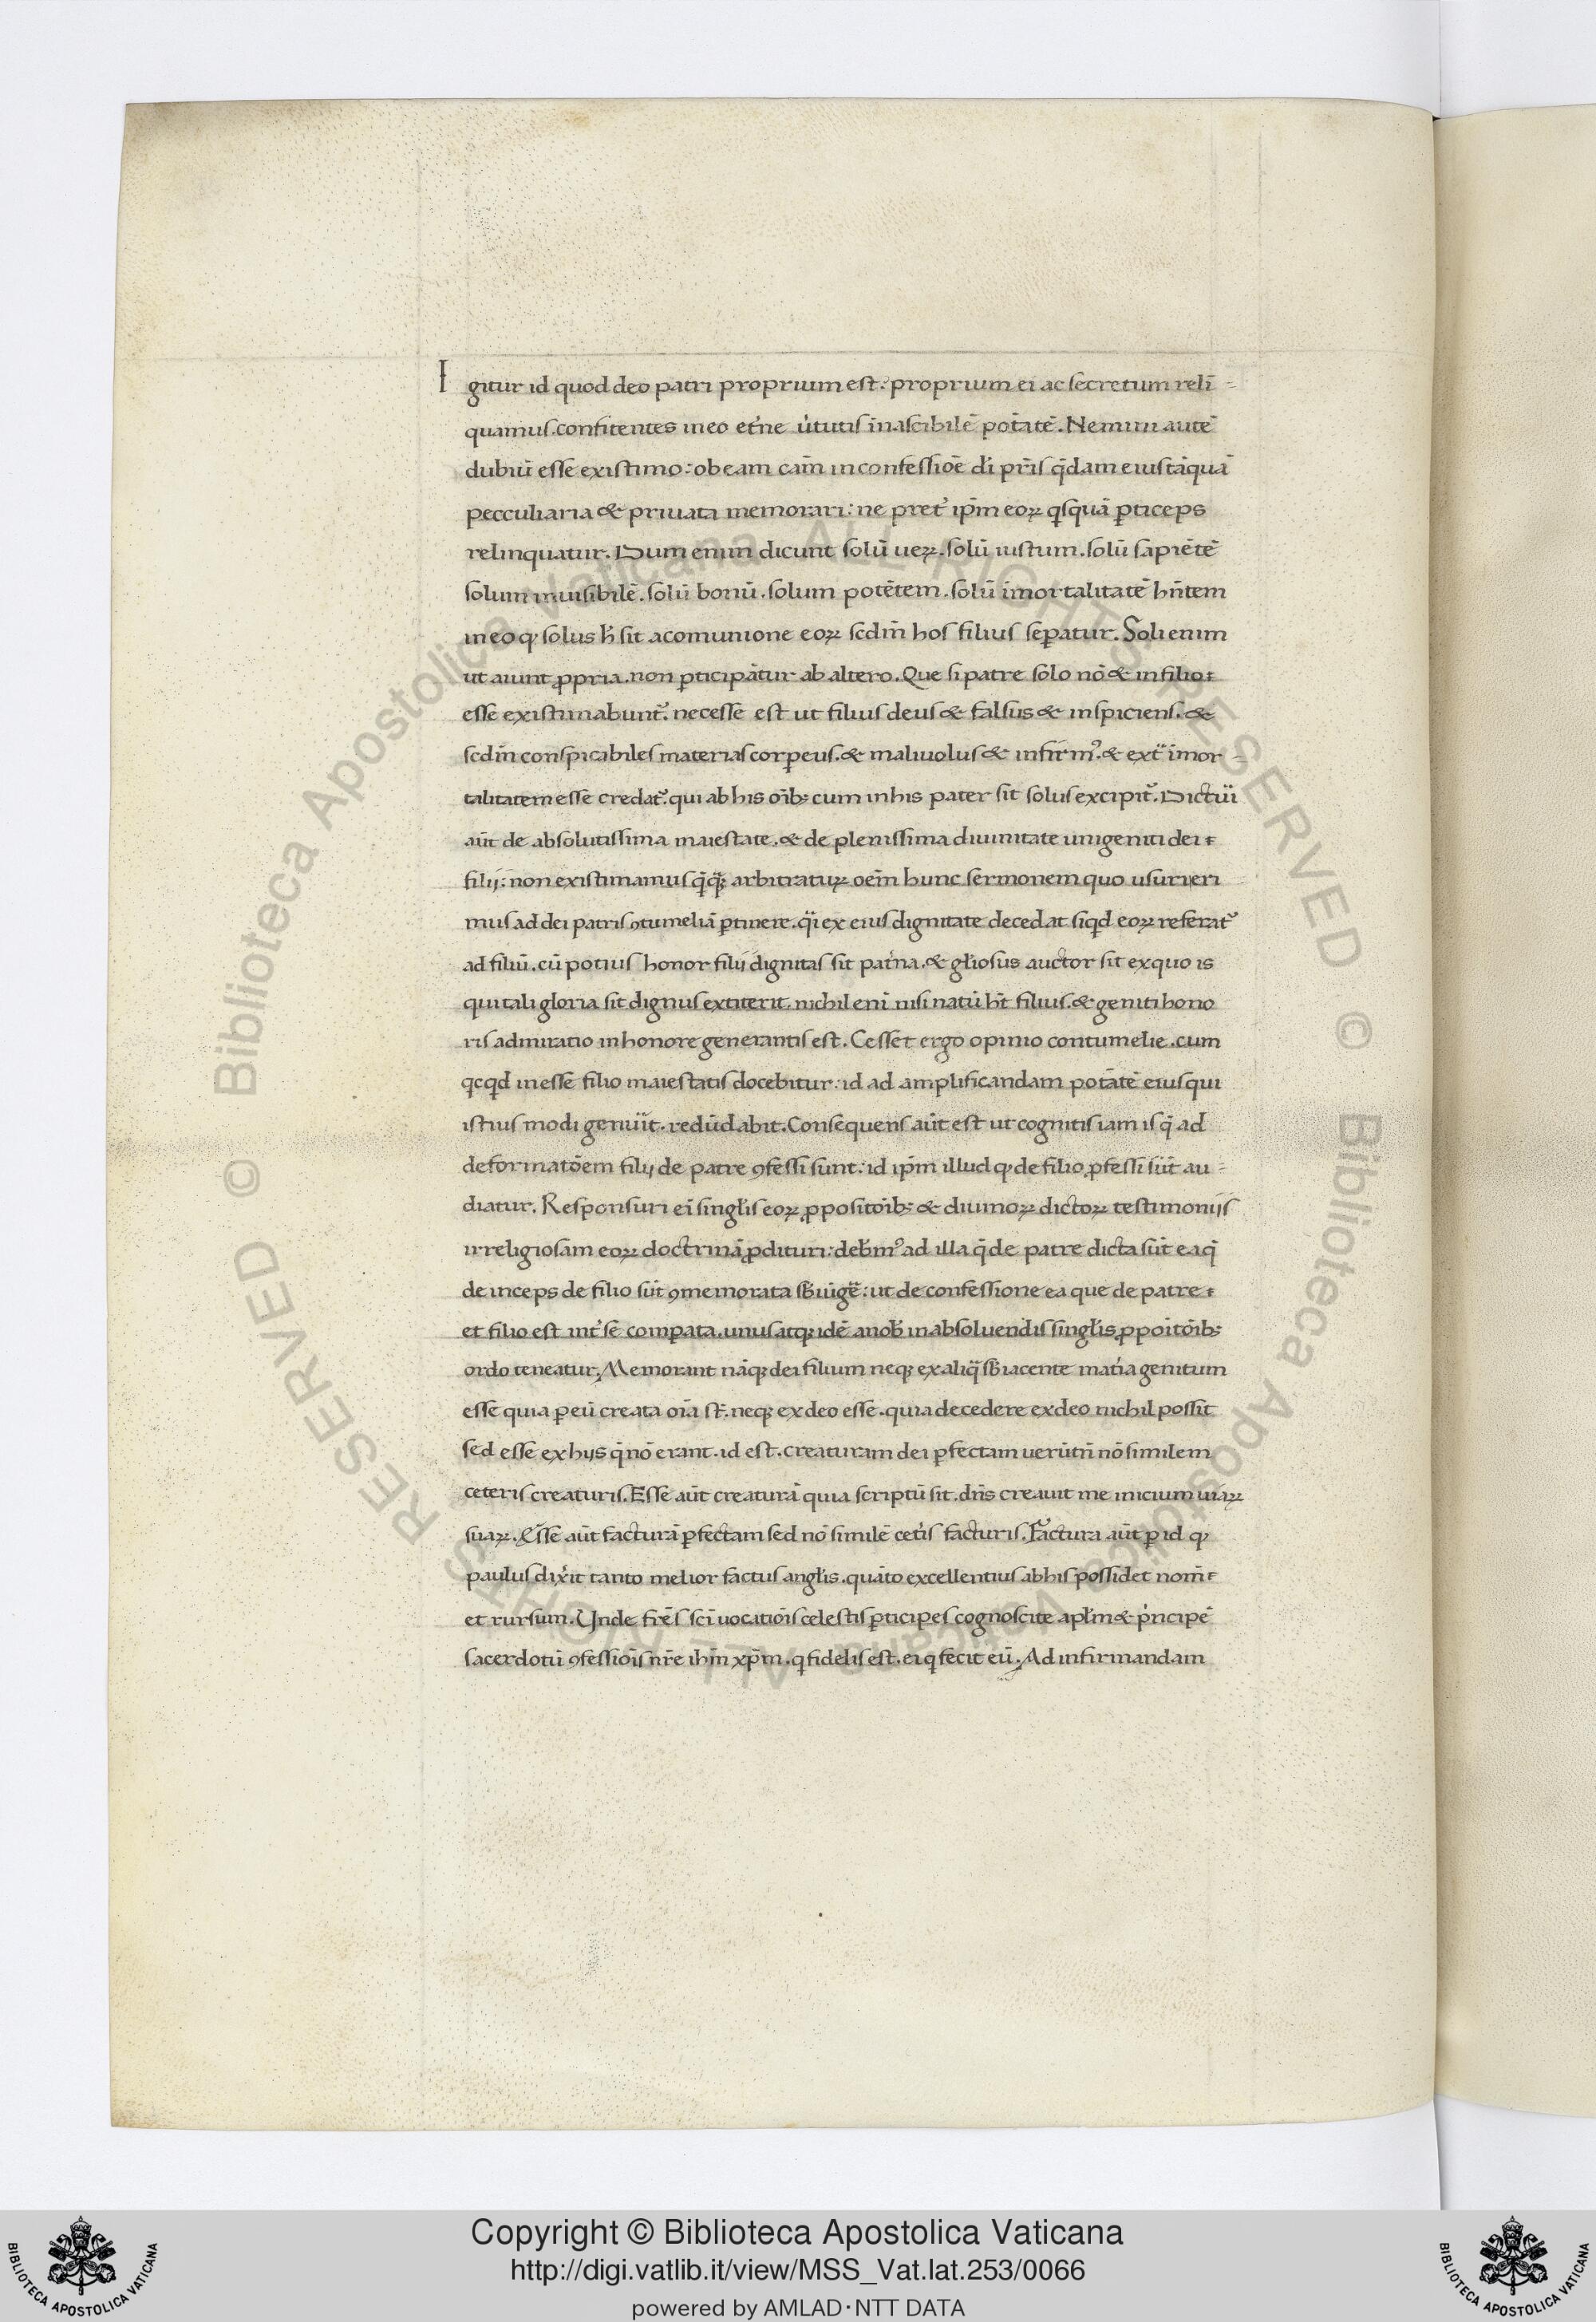 Igitur id quod deo patri proprium est: proprium ei ac secretum reli-
quamus. confitentes in eo et'ne u'tutis inascibilē potātē. Nemini autē
dubiū esse existimo: ob eam cām in confessiōe di p̄ris q̄dam eius tāquā
pecculiaria & priuata memorari: ne pret' ip̄m eoꝝ q̇squā ꝑticeps
relinquatur. Dum enim dicunt solū ueꝝ. solū iustum. solū sapiētē
solum inuisibilē. solū bonū. solum potētem. solū īmortalitatē hn̄tem
in eo ꝙ solus h̄ sit a comunione eoꝝ scdm̄ hos filius seꝑatur. Soli enim
ut aiunt ꝓpria. non ꝑticipātur ab altero. Que si patre solo nō & in filio
esse existimabunt᷑. necesse est ut filius deus & falsus & inspiciens. &
scdm̄ conspicabiles materias corꝑeus. & maliuolus & infirmꝰ. & ext̄ imor-
talitatem esse credat᷑. qui ab his oīb; cum in his pater sit solus excipit᷑. Dictūi
aūt de absolutissima maiestate. & de plenissima diuinitate unigeniti dei
filij: non existimamus q̄q̄; arbitratuꝝ oēm hunc sermonem quo usuri eri
mus ad dei patris ꝯtumeliā ꝑtinere. q̄i ex eius dignitate decedat siqd eoꝝ referat᷑
ad filiū. cū potius honor filii dignitas sit pat'na. & gl'iosus auctor sit ex quo is
qui tali gloria sit dignus extiterit. nichil enī nisi natū ht̄ filius. & geniti hono
ris admiratio in honore generantis est. Cesset ergo opinio contumelie. cum
qcqd inesse filio maiestatis docebitur: id ad amplificandam potātē eius qui
istius modi genuit. redūdabit. Consequens aūt est ut cognitis iam is q̄ ad
deformatōem filij de patre ꝯfessi sunt: id ip̄m illud ꝙ de filio ꝓfessi sūt au-
diatur. Responsuri ei singl'is eoꝝ ꝓpositōīb; & diuinoꝝ dictoꝝ testimoniis
irreligiosam eoꝝ doctrinā ꝓdituri: deb̄mꝰ ad illa q̄ de patre dicta sūt ea q̄
de inceps de filio sūt ꝯmemorata sb̄iūgē: ut de confessione ea que de patre
et filio est int' se comꝑata. unus atq; idē a nob̄ in absoluendis singl'is ꝓpoitōīb;
ordo teneatur. Memorant nāq; dei filium neq; ex aliq̄ sb̄iacente mat'ia genitum
esse quia ꝑ eū creata oīa st̄. neq; ex deo esse. quia decedere ex deo nichil possit
sed esse ex hijs q̄ nō erant. id est. creaturam dei ꝑfectam uerūtn̄ nō similem
ceteris creaturis. Esse aūt creaturā quia scriptū sit. dn̄s creauit me inicium uiaꝝ
suaꝝ. Esse aūt facturā ꝑfectam sed nō similē cet'is facturis. Factura aūt ꝑ id ꝙ
paulus dix'it tanto melior factus angl'is. quāto excellentius ab his possidet nom̄
et rursum. Unde fr̄es sc̄i uocatiōis celestis ꝑticipes cognoscite apl'm & p'ncipē
sacerdotū ꝯfessiōis nr̄e ih̄m xp̄m. q fidelis est. ei q fecit eū. Ad infirmandam
© Biblioteca Apostolica Vaticana ALL RIGHTS RESERVED
© Biblioteca Apostolica Vaticana ALL RIGHTS RESERVED
Copyright © Biblioteca Apostolica Vaticana
http://digi.vatlib.it/view/MSS_Vat.lat.253/0066
powered by AMLAD·NTT DATA
BIBLIOTECA APOSTOLICA VATICANA
BIBLIOTECA APOSTOLICA VATICANA